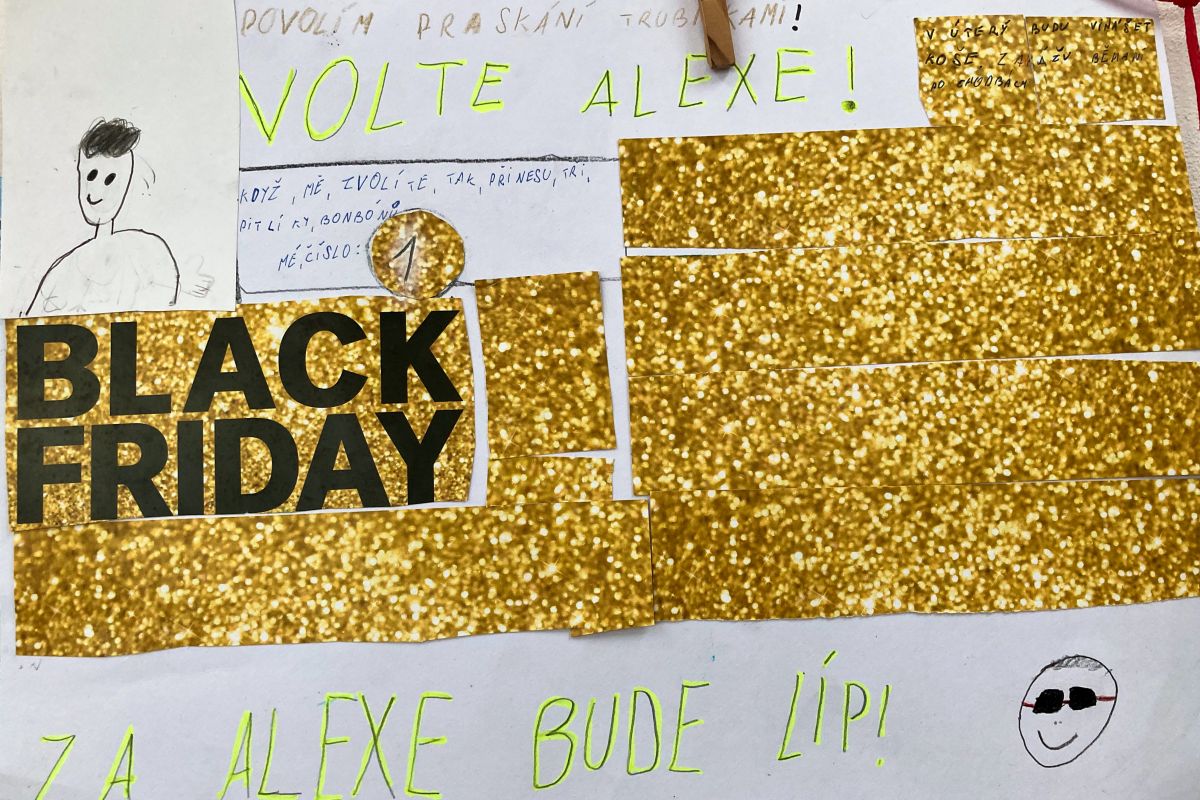 POVOLÍM PRASKÁNÍ TRUBIČKAMI!
VOLTE ALEXE!
V ÚTERÝ BUDU VINÁŠET
KOŠE. ZAKÁŽU BĚHÁNÍ
PO CHODBÁCH
KDYŽ, MĚ, ZVOLÍTE, TAK, PŘINESU, TŘI,
PITLÍKY, BONBÓNŮ
MÉ, ČÍSLO: 1
BLACK
FRIDAY
ZA ALEXE BUDE LÍP!